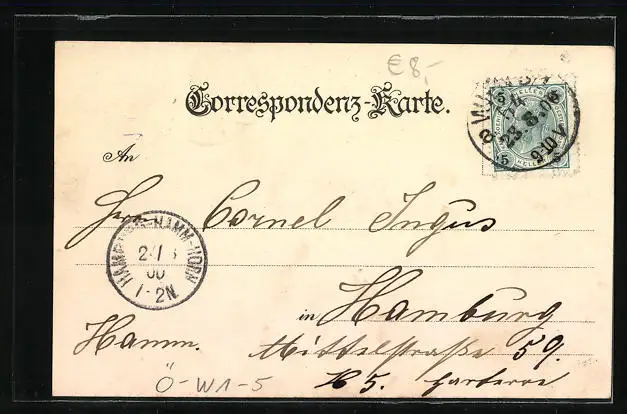 € 8,-
Correspondenz-Karte.
An
5 HELLER 5
23.8.00
9-10V
Herr Cornel Ingus
HAMBURG-HAMM-HORN
1-2N
in Hamburg
Hamm. Mittelstraße 59.
H 5. parterre
Ö-W1-5